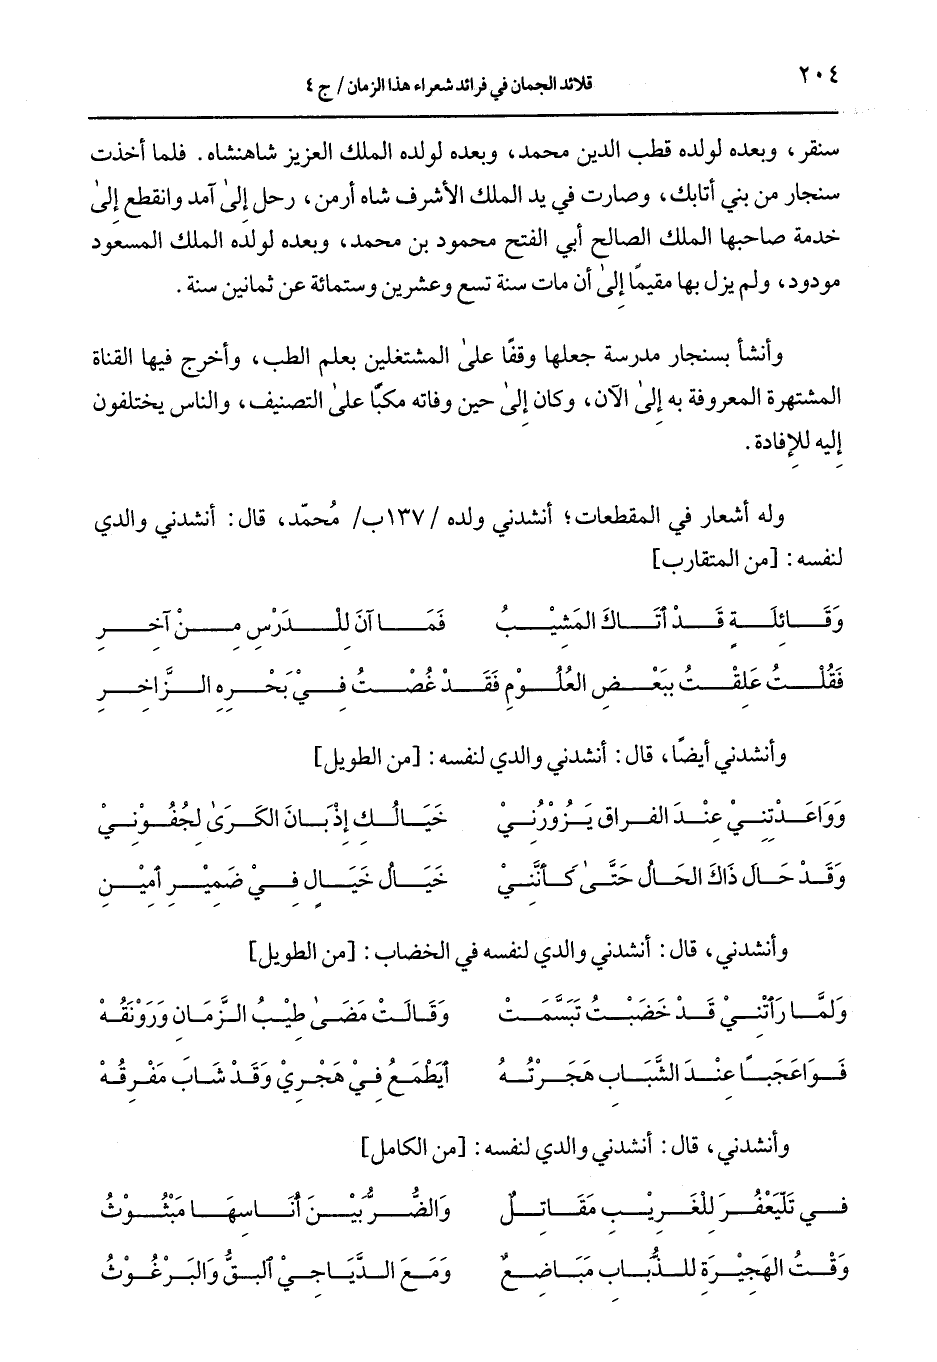 ٢٠٤
قلائد الجمان في فرائد شعراء هذا الزمان / ج ٤
سنقر، وبعده لولده قطب الدين محمد، وبعده لولده الملك العزيز شاهنشاه. فلما أخذت
سنجار من بني أتابك، وصارت في يد الملك الأشرف شاه أرمن، رحل إلىٰ آمد وانقطع إلىٰ
خدمة صاحبها الملك الصالح أبي الفتح محمود بن محمد، وبعده لولده الملك المسعود
مودود، ولم يزل بها مقيمًا إلىٰ أن مات سنة تسع وعشرين وستمائة عن ثمانين سنة.
وأنشأ بسنجار مدرسة جعلها وقفًا علىٰ المشتغلين بعلم الطب، وأخرج فيها القناة
المشتهرة المعروفة به إلىٰ الآن، وكان إلىٰ حين وفاته مكبًّا علىٰ التصنيف، والناس يختلفون
إليه للإفادة.
وله أشعار في المقطعات؛ أنشدني ولده /١٣٧ب/ مُحمّد، قال: أنشدني والدي
لنفسه: [من المتقارب]
وَقَـائِلَـةٍ قَـدْ أتَـاكَ المَشِيْـبُ فَمَـا آنَ لِلْـدَرْسِ مِـنْ آخِـرِ
فَقُلْـتُ عَلِقْـتُ بِبَعْـضِ العُلُـوْمِ فَقَـدْ غُصْـتُ فِـيْ بَحْـرِهِ الـزَّاخِـرِ
وأنشدني أيضًا، قال: أنشدني والدي لنفسه: [من الطويل]
وَوَاعَـدْتنِـيْ عِنْـدَ الفِـراقِ يَـزُوْرُنِـيْ خَيَـالُـكِ إِذْ بَـانَ الكَـرَىٰ لِجُفُـوْنِـيْ
وَقَـدْ حَـالَ ذَاكَ الحَـالُ حَتَّـىٰ كَـأنَّنِـيْ خَيَـالُ خَيَـالٍ فِـيْ ضَمِيْـرِ أمِيْـنِ
وأنشدني، قال: أنشدني والدي لنفسه في الخضاب: [من الطويل]
وَلَمَّـا رَأتْنِـيْ قَـدْ خَضَبْـتُ تَبَسَّمَـتْ وَقَـالَـتْ مَضَـىٰ طِيْـبُ الـزَّمَـانِ وَرَوْنَقُـهْ
فَـوَاعَجَبـًا عِنْـدَ الشَّبَـابِ هَجَـرْتُـهُ أيَطْمَـعُ فِـيْ هَجْـرِيْ وَقَـدْ شَـابَ مَفْـرِقُـهْ
وأنشدني، قال: أنشدني والدي لنفسه: [من الكامل]
فـي تَلّيَعْفُـرَ لِلْغَـرِيْـبِ مَقَـاتِـلٌ وَالضُّـرُّ بَيْـنَ أنَـاسِهَـا مَبْثُـوْثُ
وَقْـتُ الهَجِيْـرَةِ لِلـذُّبَـابِ مَبَـاضِـعٌ وَمَـعَ الـدَّيَـاجِـيْ البَـقُّ وَالبَـرْغُـوْثُ